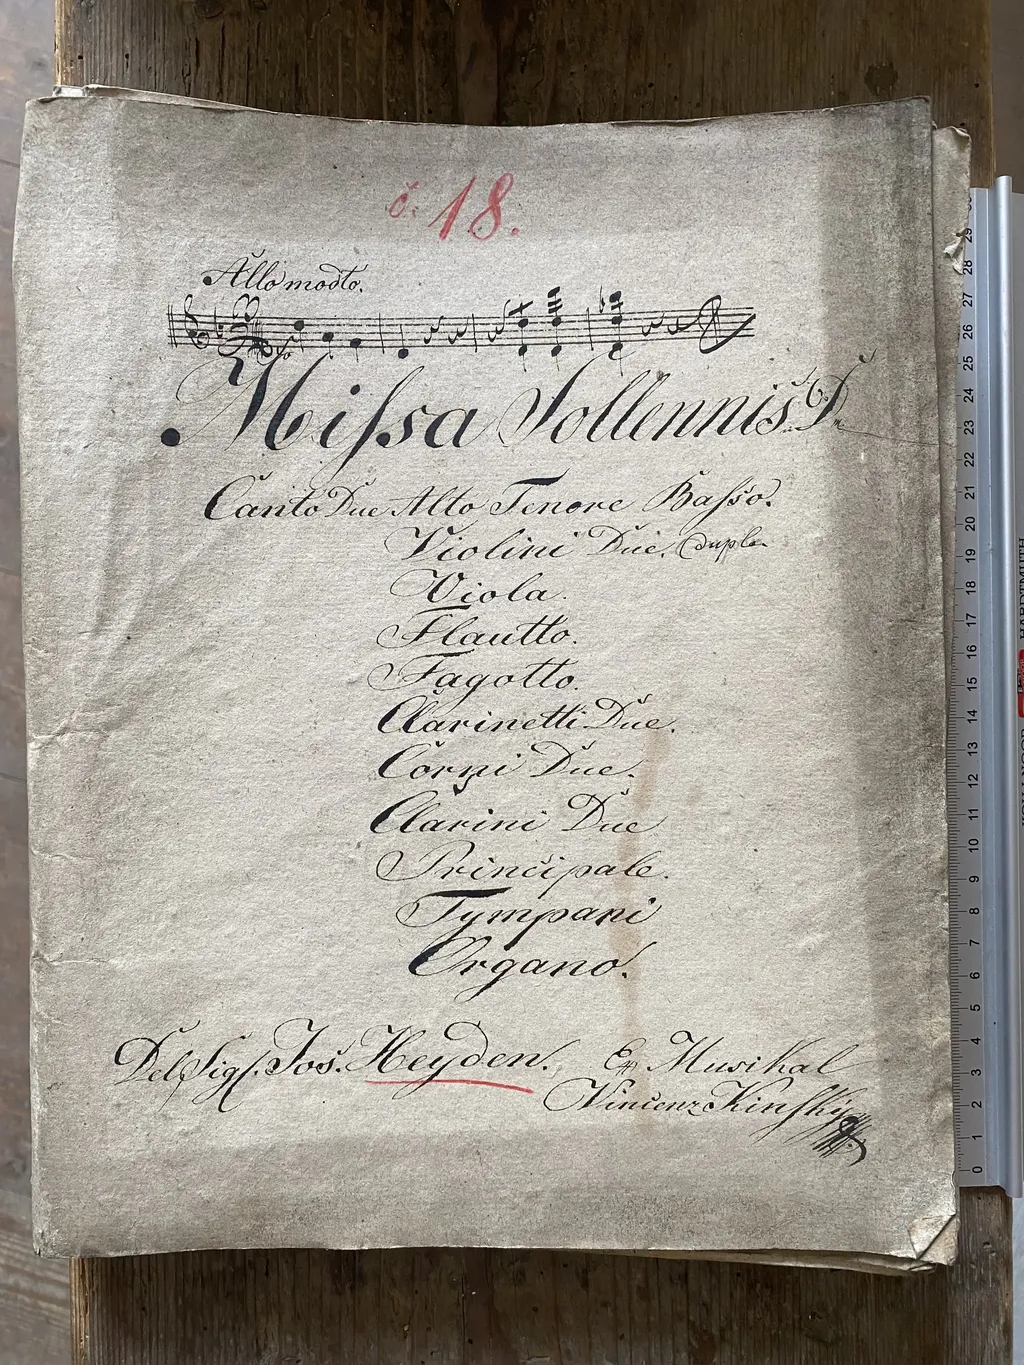 č. 18.
Allo modto.
Missa Sollennis. D.
Canto Due Alto Tenore Basso.
Violini Due. duple.
Viola.
Flautto.
Fagotto.
Clarinetti Due.
Corni Due.
Clarini Due
Principale.
Tympani
Organo.
Del Sigl. Jos. Heyden. Ex Musikal
Vincenz Kinsky
30
29
28
27
26
25
24
23
22
21
20
19
18
17
16
15
14
13
12
11
10
9
8
7
6
5
4
3
2
1
0
HARDTMUTH